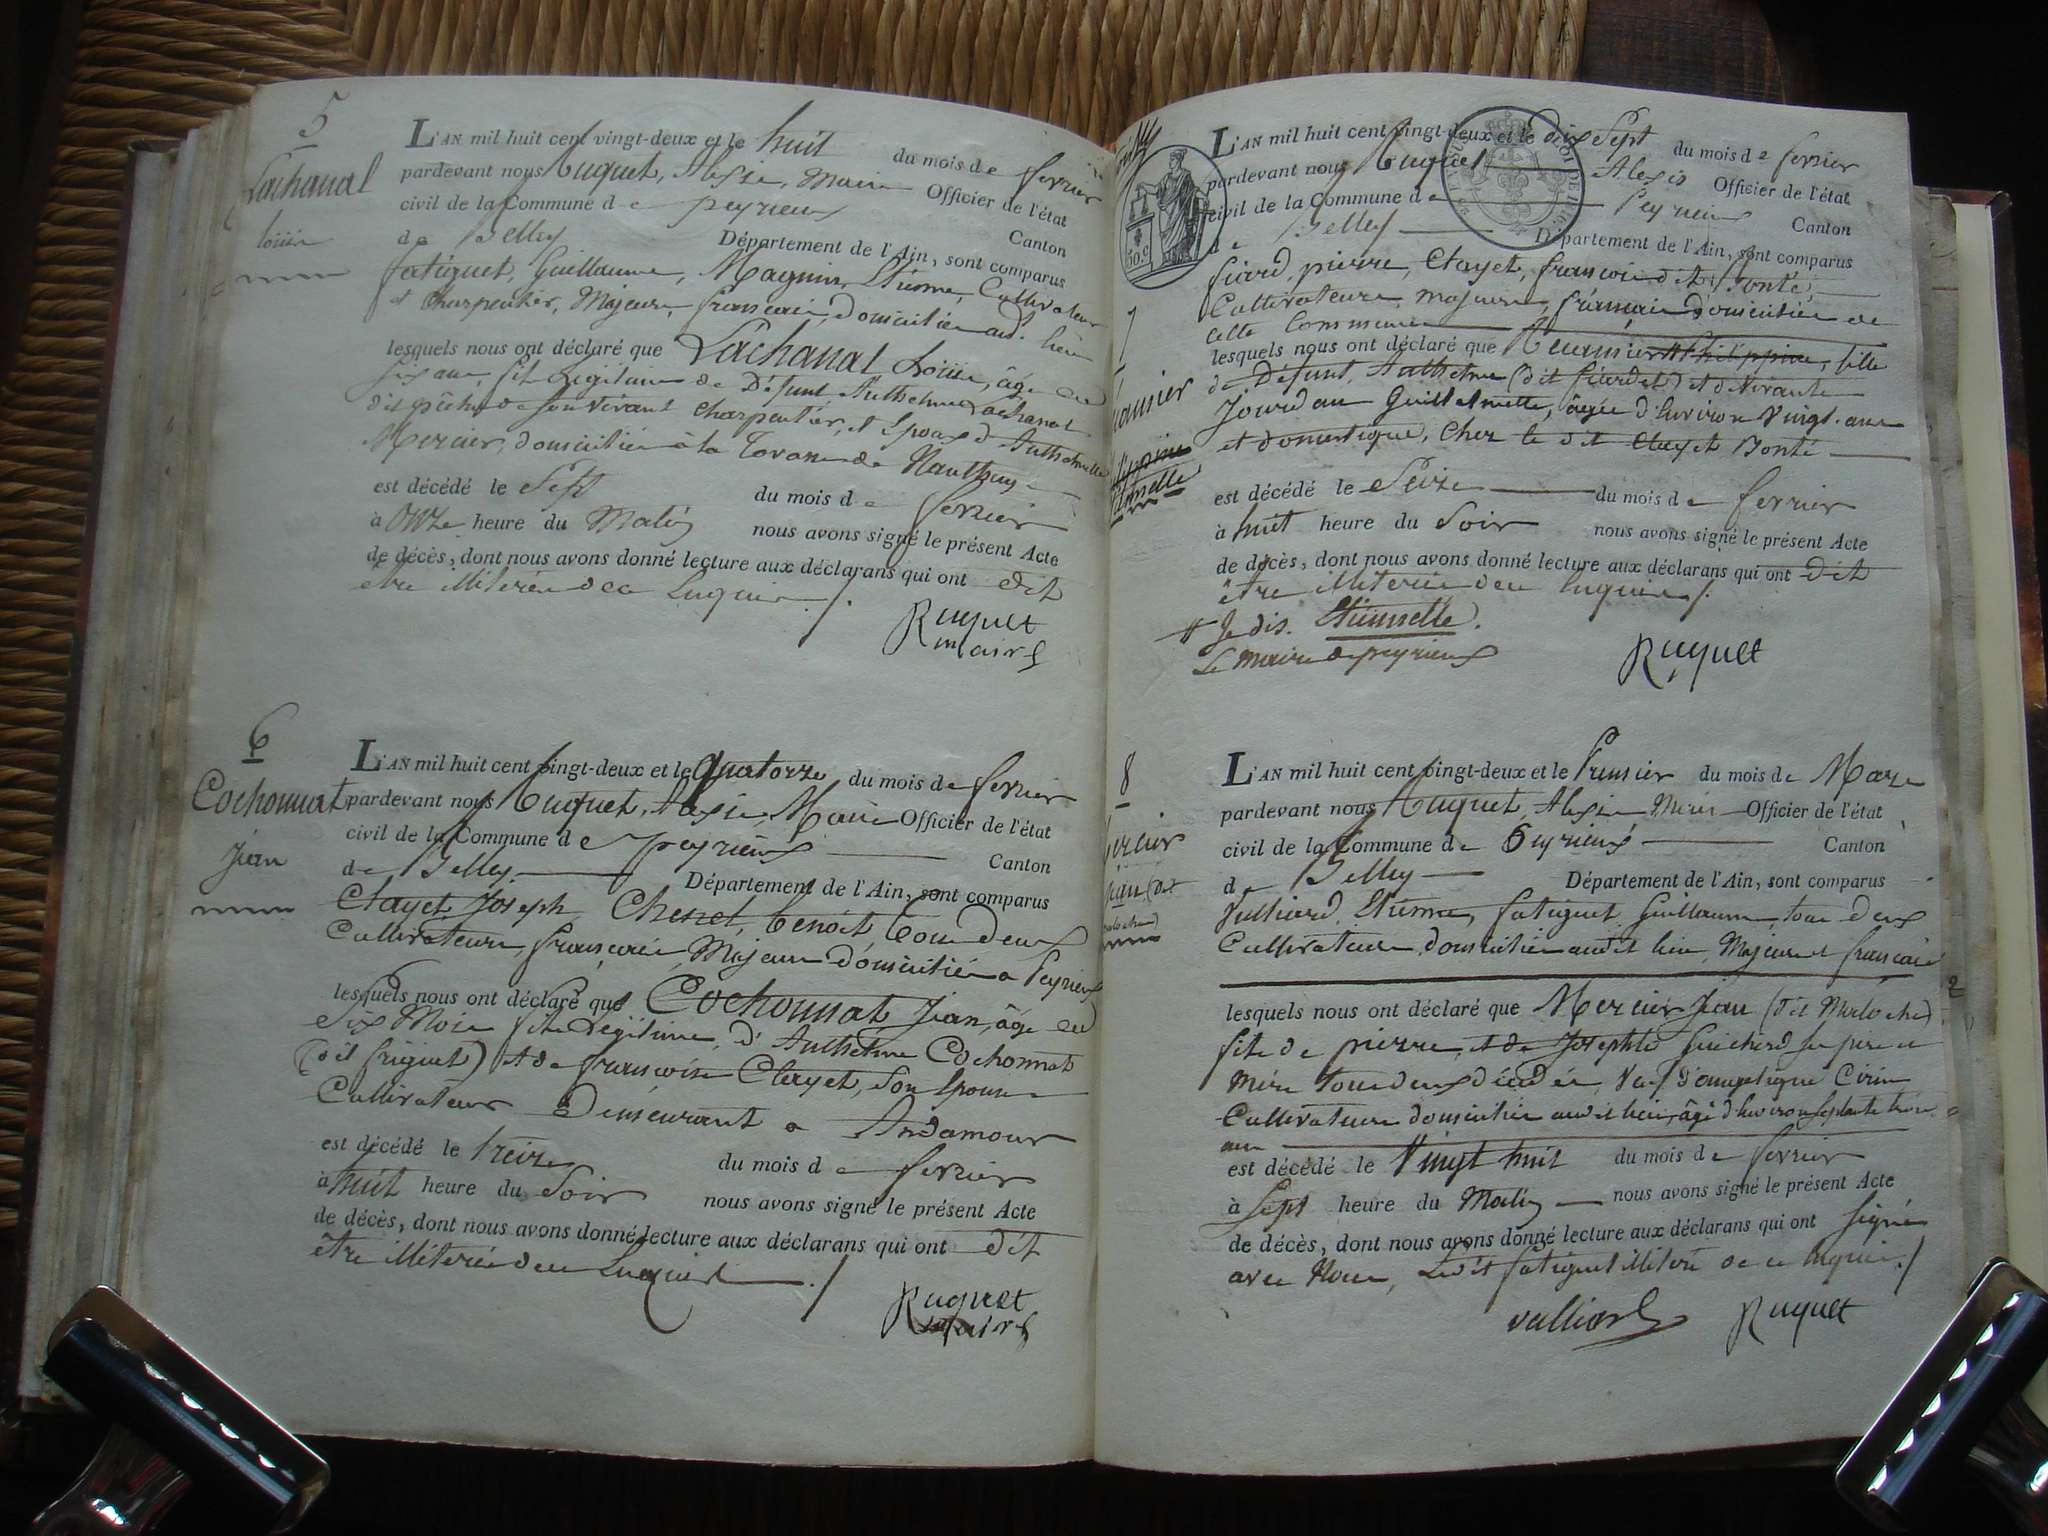 5
Lachanal
Louis
L'AN mil huit cent vingt-deux et le huit du mois de fevrier
pardevant nous Ruquet, Alexis, Maire Officier de l'état
civil de la Commune de peyrieux Canton
de Belley Département de l'Ain, sont comparus
fatiguet, Guillaume, Magnin, Etienne, Cultivateur
et Charpentier, Majeurs, francais, domicilies aud. lieu
lesquels nous ont déclaré que Lachanal Louis, âgé de
six ans, fils legitime de Défunt, Anthelme Lachanal
dit de son vivant charpentier, et Epoux d'Anthelmette
Mercier, domicilié à la de Nanthuy
est décédé le Sept du mois de fevrier
à Onze heure du Matin nous avons signé le présent Acte
de décès, dont nous avons donné lecture aux déclarans qui ont dit
être illiterés de ce Enquis ./.
Ruquet
maire
6
Cochonnat
Jean
L'AN mil huit cent vingt-deux et le Quatorze du mois de fevrier
pardevant nous Ruquet, Alexis, Maire Officier de l'état
civil de la Commune de peyrieux Canton
de Belley Département de l'Ain, sont comparus
Clayet, Joseph, Chesnel, benoit, tous deux
Cultivateurs, francais, Majeurs Domiciliés a Peyrieux
lesquels nous ont déclaré que Cochonnat Jean, âgé de
Six Mois fils Legitime, d'Anthelme Cochonnat
(dit friguet) et de francoise Clayet, son Epouse
Cultivateurs Demeurant a Andamour
est décédé le treize du mois de fevrier
à huit heure du Soir nous avons signé le présent Acte
de décès, dont nous avons donné lecture aux déclarans qui ont dit
être illiterés de ce Enquis ./
Ruquet
maire
7
L'AN mil huit cent vingt-deux et le dix Sept du mois de fevrier
pardevant nous Ruquet Alexis Officier de l'état
civil de la Commune de Peyrieux Canton
de Belley Département de l'Ain, sont comparus
fiard, pierre, Clayet, francois dit Bonté,
Cultivateurs, majeurs, francais domiciliés de
cette Commune
lesquels nous ont déclaré que # Philippine, fille
de Défunt, Anthelme (dit fiardet) et de Vivante
Jourdan Guillelmette, âgée d'Environ Vingt ans
et domestique, chez le dit Clayet Bonté
est décédé le Seize du mois de fevrier
à huit heure du Soir nous avons signé le présent Acte
de décès, dont nous avons donné lecture aux déclarans qui ont dit
être illiterés de ce Enquis ./.
# Je dis. Etiennette.
Le maire de peyrieux Ruquet
8
L'AN mil huit cent vingt-deux et le Premier du mois de Mars
pardevant nous Ruquet, Alexis Maire Officier de l'état
civil de la Commune de Peyrieux Canton
de Belley Département de l'Ain, sont comparus
Vulliard, Etienne, fatiguet Guillaume, tous deux
Cultivateurs domiciliés audit lieu, Majeurs et francais
lesquels nous ont déclaré que Mercier Jean (dit Maloche)
fils de pierre, et de Josephte Guichard ses pere et
mère tous deux décédés, Veuf d'angelique Cirin
Cultivateur domicilié audit lieu, âgé d'Environ septante trois
ans
est décédé le Vingt huit du mois de fevrier
à Sept heure du Matin nous avons signé le présent Acte
de décès, dont nous avons donné lecture aux déclarans qui ont signé
avec Nous, Ledit fatiguet illiteré de ce enquis ./
vulliard Ruquet